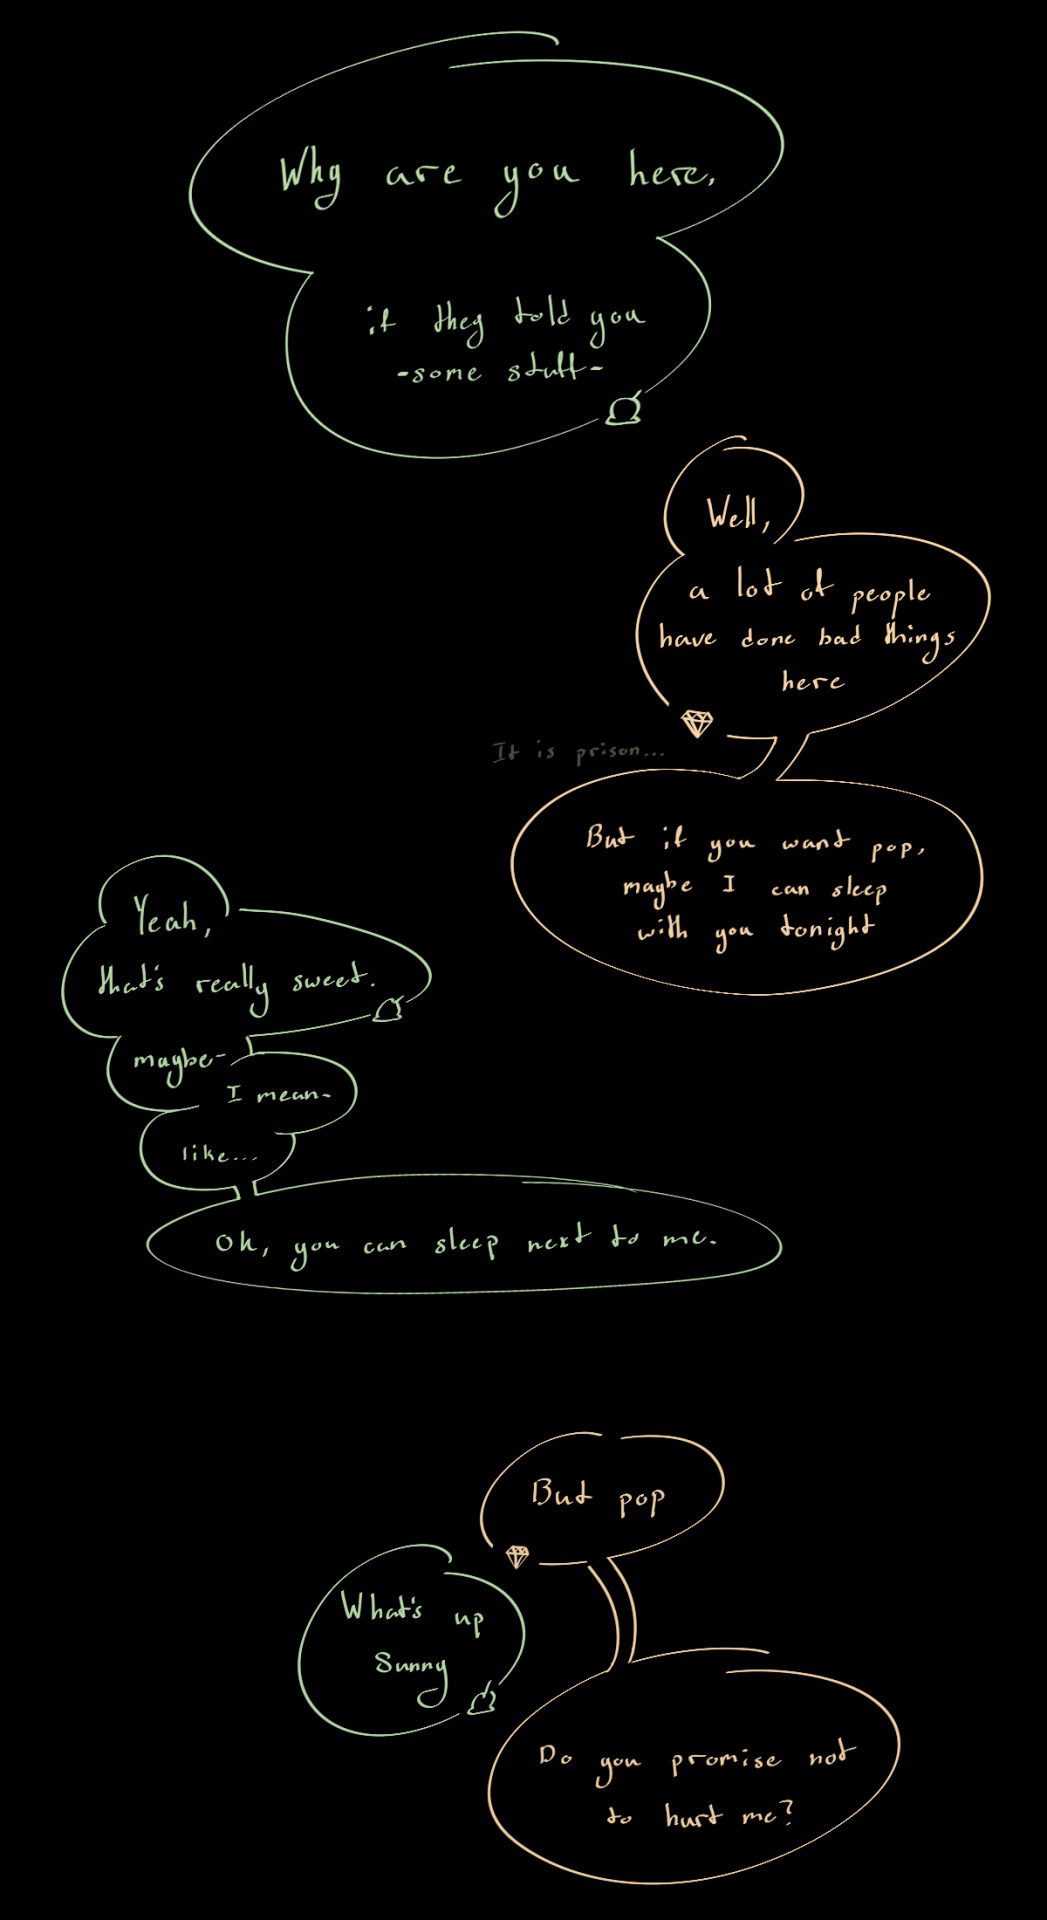 Why are you here,
if they told you
-some stuff-
Well,
a lot of people
have done bad things
here
It is prison...
But if you want pop,
maybe I can sleep
with you tonight
Yeah,
that's really sweet.
maybe-
I mean-
like...
Oh, you can sleep next to me.
But pop
What's up
Sunny
Do you promise not
to hurt me?